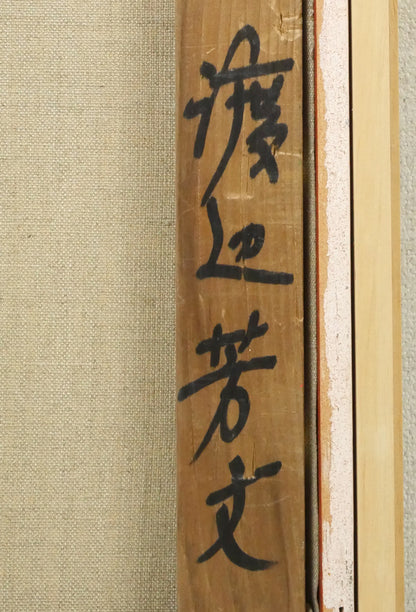 渡辺芳文